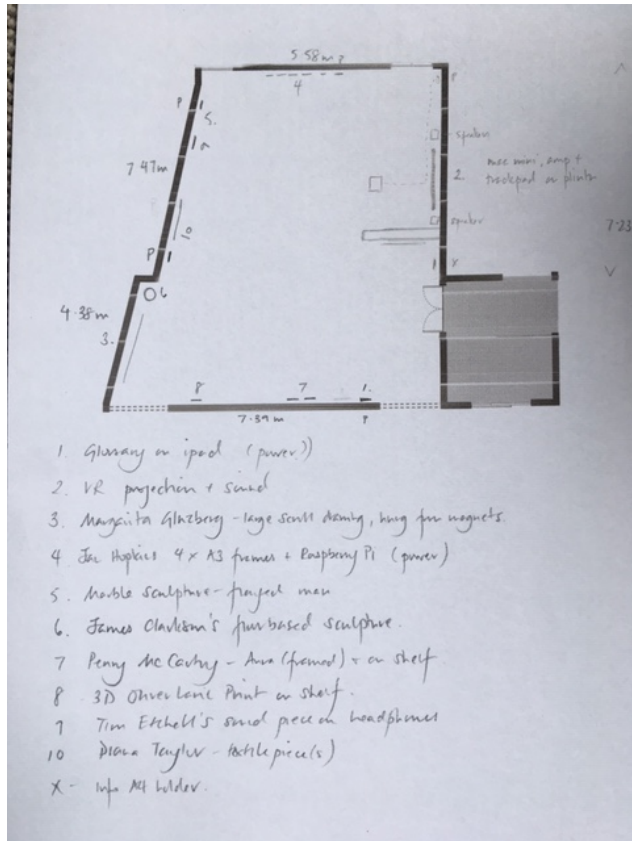 5.58m
4
P
P
5.
speaker
7.47m
mac mini, amp +
trackpad on plinth
2.
speaker
7.23
10
P
X
6
4.38m
3.
8
7
1.
7.39m
P
1. Glossary on ipad (power))
2. VR projection + sound
3. Margarita Gluzberg - large scroll drawing, hung from magnets.
4 Jac Hopkins 4 x A3 frames + Raspberry Pi (power)
5. Marble sculpture - frayed man
6. James Clarkson's fur based sculpture.
7 Penny McCarthy - (framed) + on shelf
8 3D Print on shelf.
Tim Etchell's sound piece on headphones
10 Diana Taylor - textile piece(s)
X - Info A4 holder.